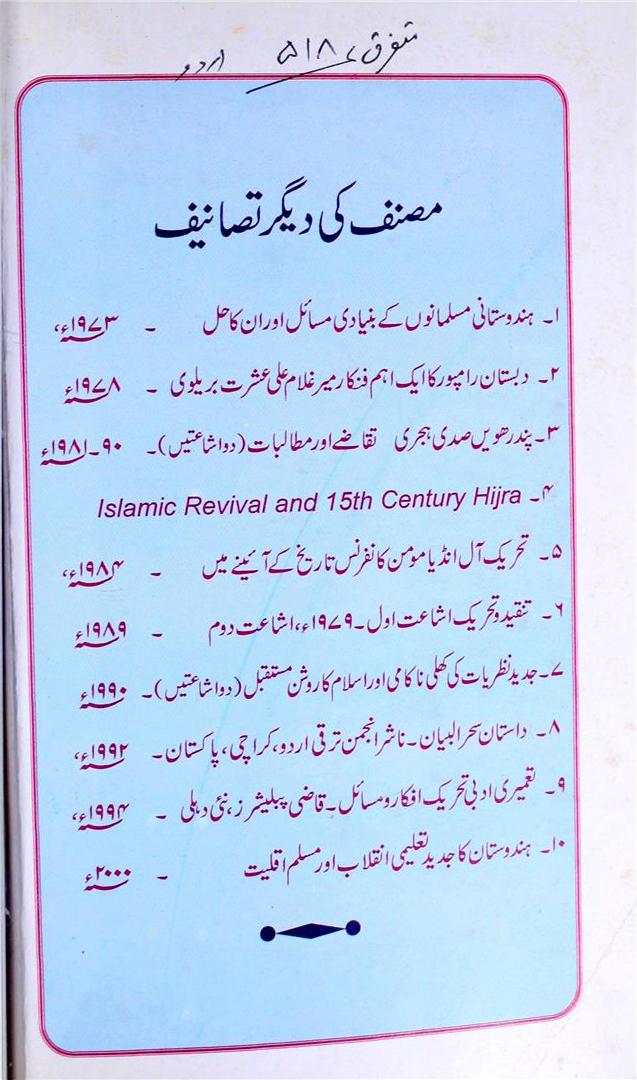 متفرق ۵۱۸ اردو
مصنف کی دیگر تصانیف
۱۔ ہندوستانی مسلمانوں کے بنیادی مسائل اور ان کا حل ۔ ۱۹۷۳ء،
۲۔ دبستان رامپور کا ایک اہم فنکار میر غلام علی عشرت بریلوی ۔ ۱۹۷۸ء
۳۔ پندرھویں صدی ہجری تقاضے اور مطالبات (دو اشاعتیں)۔ ۹۰۔۱۹۸۱ء
۴۔ Islamic Revival and 15th Century Hijra
۵۔ تحریک آل انڈیا مومن کانفرنس تاریخ کے آئینے میں ۔ ۱۹۸۴ء،
۶۔ تنقید و تحریک اشاعت اول۔۱۹۷۹ء، اشاعت دوم ۔ ۱۹۸۹ء
۷۔ جدید نظریات کی کھلی ناکامی اور اسلام کا روشن مستقبل (دو اشاعتیں)۔ ۱۹۹۰ء
۸۔ داستان سحر البیان۔ ناشر انجمن ترقی اردو، کراچی، پاکستان۔ ۱۹۹۲ء،
۹۔ تعمیری ادبی تحریک افکار و مسائل۔ قاضی پبلیشرز، نئی دہلی ۔ ۱۹۹۴ء،
۱۰۔ ہندوستان کا جدید تعلیمی انقلاب اور مسلم اقلیت ۔ ۲۰۰۰ء